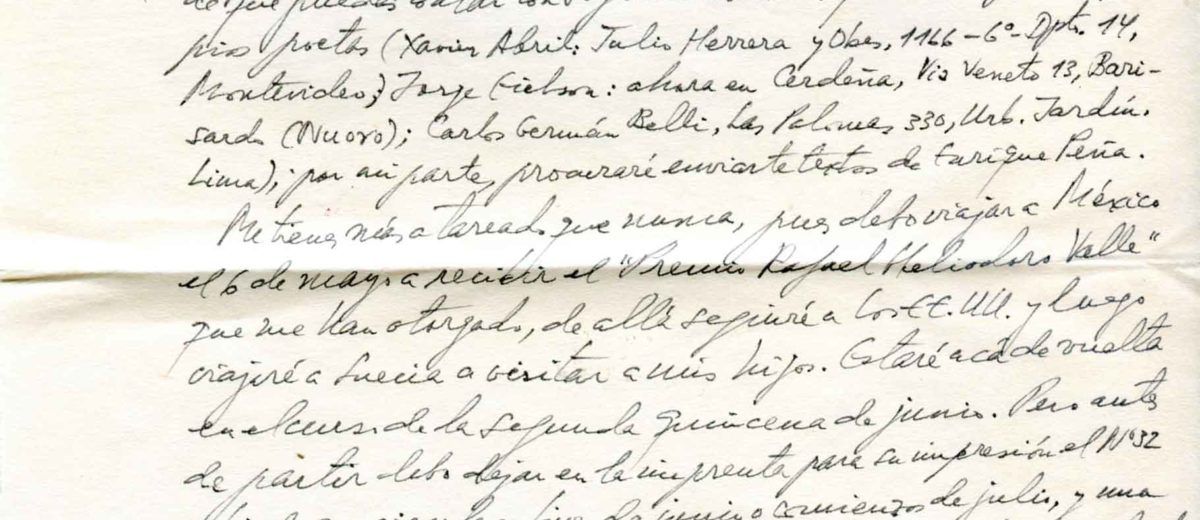 de que puedes contar con
pios poetas (Xavier Abril: Julio Herrera y Obes, 1166-6º-Dpto. 14,
Montevideo; Jorge Eielson: ahora en Cerdeña, Via Veneto 13, Bari-
sardo (Nuoro); Carlos Germán Belli, Las Palomas 330, Urb. Jardín.
Lima); por mi parte, procuraré enviarte textos de Enrique Peña.
Me tienes más atareado que nunca, pues debo viajar a México
el 6 de mayo a recibir el "Premio Rafael Heliodoro Valle"
que me han otorgado, de allá seguiré a los EE. UU. y luego
viajaré a Suecia a visitar a mis hijos. Estaré acá de vuelta
en el curso de la segunda quincena de junio. Pero antes
de partir debo dejar en la imprenta para su impresión el Nº 32
de junio o comienzos de julio, y una